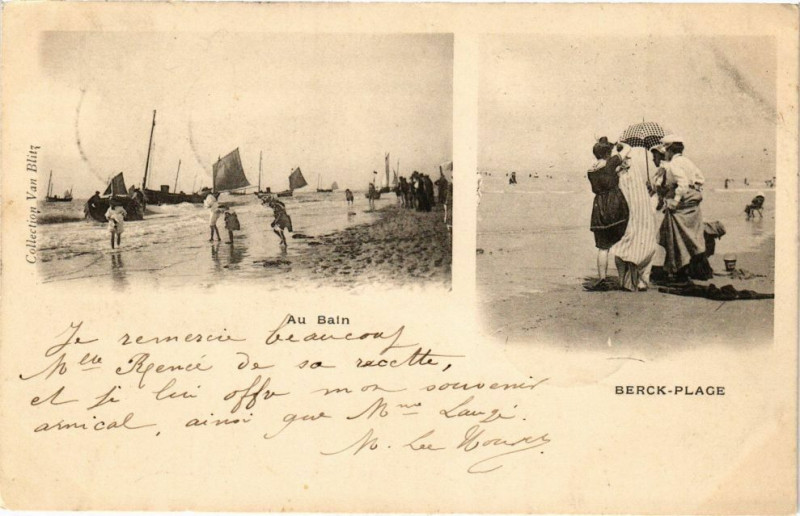 Collection Van Blitz
Au Bain
BERCK-PLAGE
Je remercie beaucoup
Mlle Renée de sa recette,
et je lui offre mon souvenir
amical, ainsi que Mme Laugé.
M. Le